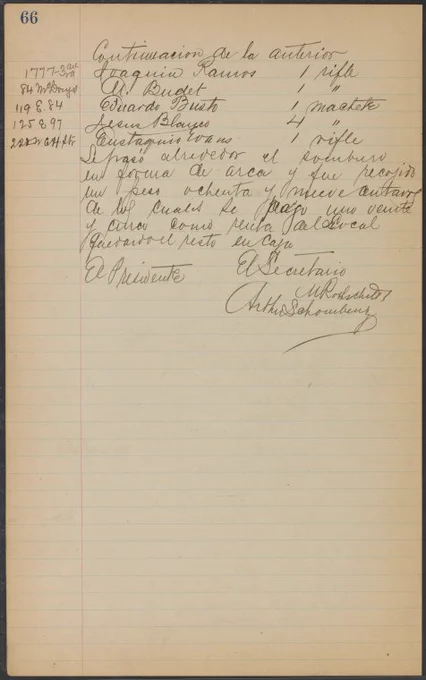 66
Continuacion de la anterior
1777-3rd Joaquin Ramos 1 rifle
M. Budet 1 "
119 E. 84 Eduardo Busto 1 machete
125 E 97 Jesus Blanco 4 "
Eustaquio Evans 1 rifle
Se pasó alrededor el sombrero
en forma de arca y fue recojido
un peso ochenta y nueve centavos
de los cuales se pago uno veinte
y cinco como renta del Local
quedando el resto en caja
El Presidente El Secretario
Arthur Schomburg